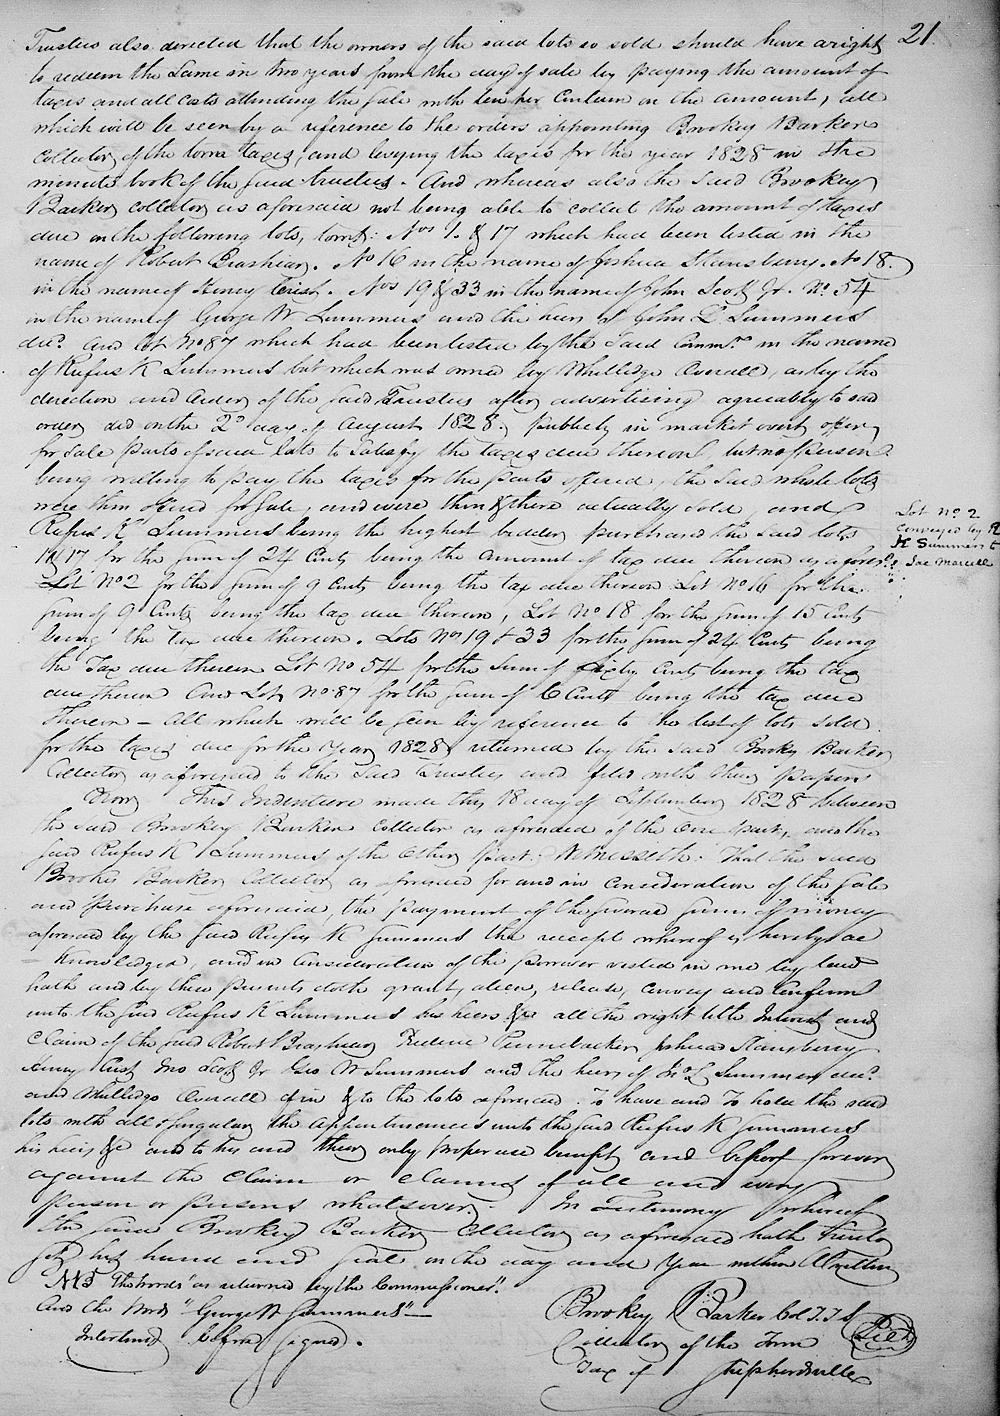 21.
Trustees also directed that the owners of the said lots so sold should have a right
to redeem the same in two years from the day of sale by paying the amount of
taxes and all costs attending the sale with ten per centum on the amount, all
which will be seen by a reference to the orders appointing Brookey Barker
collector of the town taxes, and levying the taxes for the year 1828 in the
minute book of the said trustees. And whereas also the said Brookey
Barker collector as aforesaid not being able to collect the amount of taxes
due on the following lots, towit: Nos 1. & 17 which had been listed in the
name of Robert Brashear. No 16 in the name of Joshua Stansberry. No 18.
in the name of Henry Crist. Nos 19 & 33 in the name of John Scott Jr. No. 54
in the name of George W Summers and the heirs of John L Summers
decd. and Lot No 87 which had been listed by the said Commrs in the name
of Rufus K Summers but which was owned by Whilledge Overall, as by the
direction and order of the said Trustees after advertising agreeably to said
order did on the 2d day of August 1828, publicly in market overt offer
for sale parts of said lots to satisfy the taxes due thereon, but no person
being willing to pay the taxes for the parts offered, the said whole lots
were then offered for sale, and were then & there actually sold, and
Rufus K Summers being the highest bidder purchased the said lots
1 & 17 for the sum of 24 Cents being the amount of tax due thereon as aforesd.
Lot No 2 for the sum of 9 cents being the tax due thereon Lot No 16 for the
sum of 9 Cents being the tax due thereon, Lot No 18 for the sum of 15 Cents
being the tax due thereon. Lots Nos 19 & 33 for the sum of 24 Cents being
the Tax due thereon Lot No 54 for the sum of Cents being the tax
due thereon And Lot No 87 for the sum of 6 Cents being the tax due
thereon – All which will be seen by reference to the list of lots sold
for the taxes due for the Year 1828 returned by the said Brookey Barker
Collector as aforesaid to the said Trustees and filed with their papers
Now This Indenture made this 18 day of September 1828 between
the said Brookey Barker Collector as aforesaid of the one part, and the
said Rufus K Summers of the other part. Witnesseth. That the said
Brookey Barker Collector as aforesaid for and in consideration of the sale
and purchase aforesaid, the payment of the several sums of money
aforesaid by the said Rufus K Summers the receipt whereof is hereby ac
– knowledged, and in consideration of the power vested in me by law
hath and by these presents doth grant, alien, release, convey and confirm
unto the said Rufus K Summers his heirs &c all the right title Interest and
claim of the said Robert Brashear Pennebacker Joshua Stansberry
Henry Crist Jno Scott Jr Geo W Summers and the heirs of Jno L Summers decd.
and Whilledge Overall of in & to the lots aforesaid. To have and To hold the said
lots with all & singular the appurtenances unto the said Rufus K Summers
his heirs &c and to his and their only proper use benefit and behoof forever
against the claim or claims of all and every
person or persons whatsoever. In Testimony whereof
the said Brookey Barker Collector as aforesaid hath hereto
set his hand and seal on the day and year within Written
NB The words "as returned by the Commissioners".
and the words "George W Summers" —
Interlined before signed.
Brookey Barker Col T.T.S. Seal
Collector of the Town
Tax of Shepherdsville
Lot No 2
conveyed by R
K Summers to
Marcell